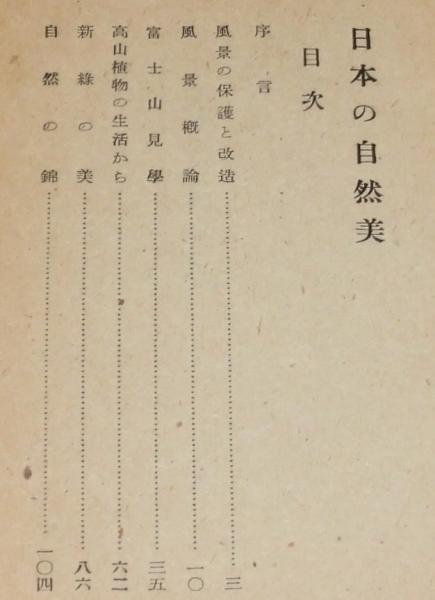 日本の自然美
目次
序言
風景の保護と改造……三
風景概論……一〇
富士山見學……三五
高山植物の生活から……六二
新綠の美……八六
自然の錦……一〇四